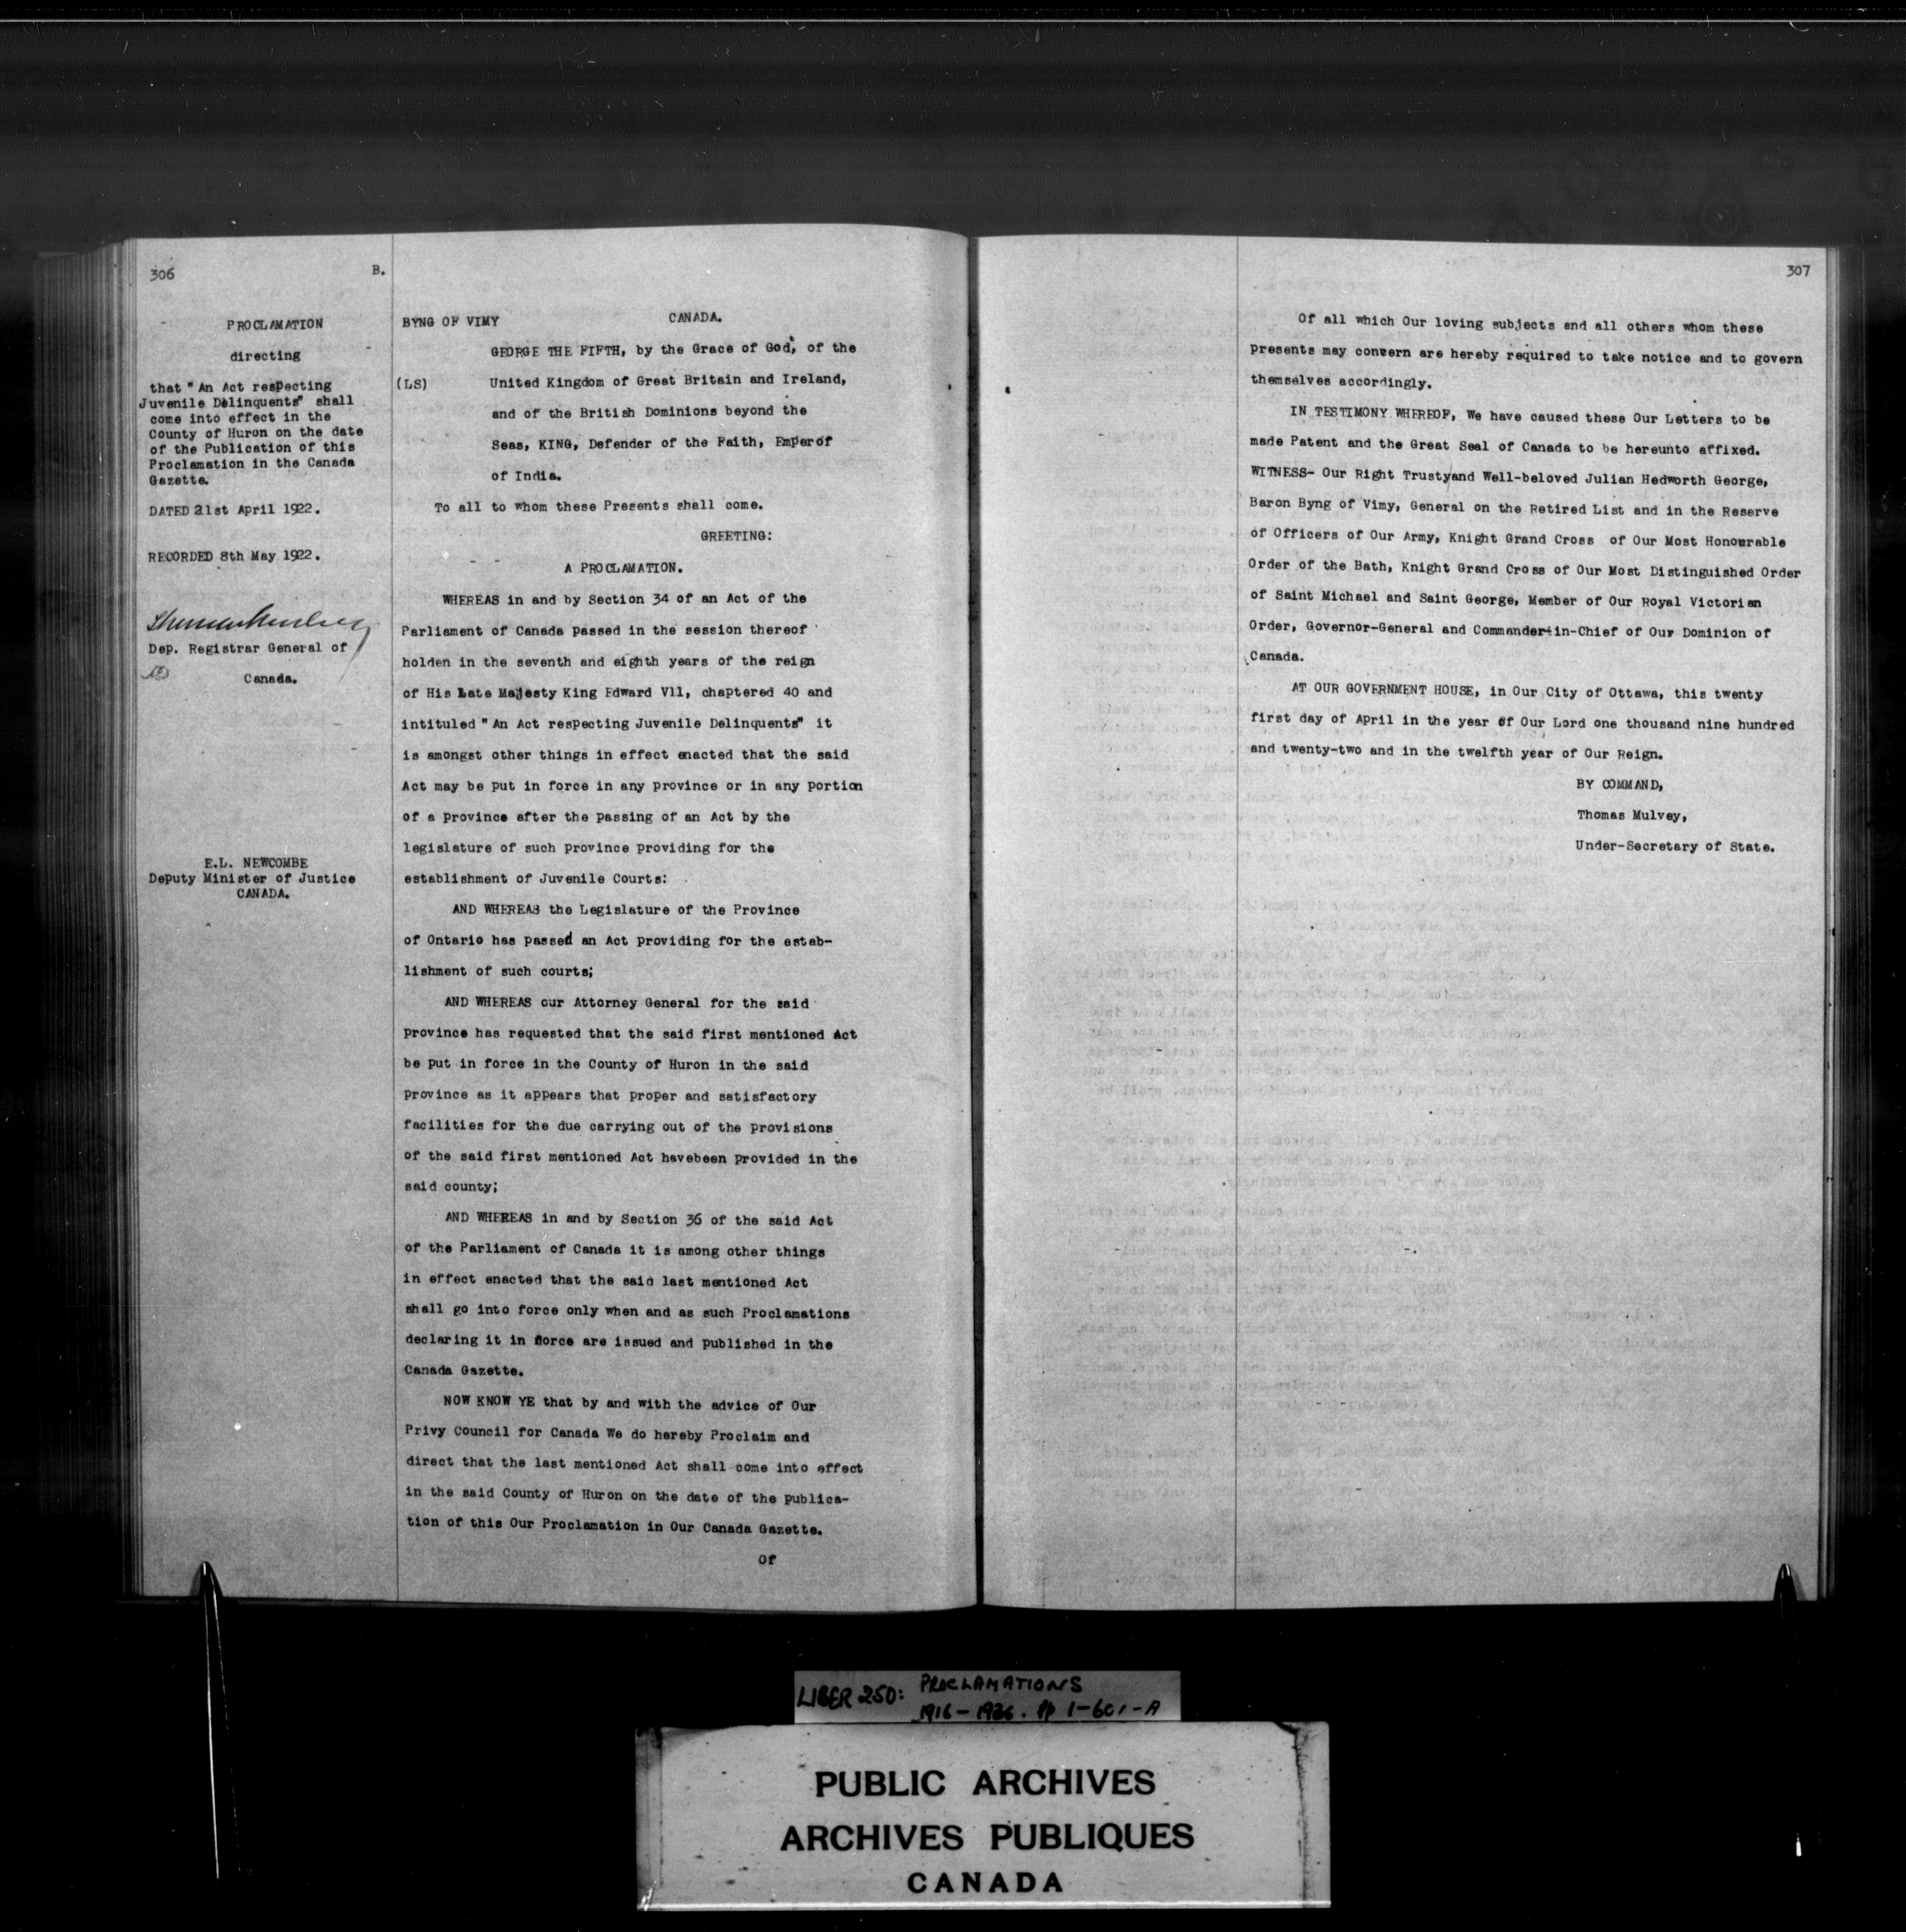 306
B.
PROCLAMATION
directing
that "An Act respecting
Juvenile Delinquents" shall
come into effect in the
County of Huron on the date
of the Publication of this
Proclamation in the Canada
Gazette.
DATED 21st April 1922.
RECORDED 8th May 1922.
Dep. Registrar General of
Canada.
E.L. NEWCOMBE
Deputy Minister of Justice
CANADA.
BYNG OF VIMY CANADA.
GEORGE THE FIFTH, by the Grace of God, of the
(LS) United Kingdom of Great Britain and Ireland,
and of the British Dominions beyond the
Seas, KING, Defender of the Faith, Emperof
of India.
To all to whom these Presents shall come.
GREETING:
A PROCLAMATION.
WHEREAS in and by Section 34 of an Act of the
Parliament of Canada passed in the session thereof
holden in the seventh and eighth years of the reign
of His Late Majesty King Edward Vll, chaptered 40 and
intituled "An Act respecting Juvenile Delinquents" it
is amongst other things in effect enacted that the said
Act may be put in force in any province or in any portion
of a province after the passing of an Act by the
legislature of such province providing for the
establishment of Juvenile Courts:
AND WHEREAS the Legislature of the Province
of Ontario has passed an Act providing for the estab-
lishment of such courts;
AND WHEREAS our Attorney General for the said
province has requested that the said first mentioned Act
be put in force in the County of Huron in the said
province as it appears that proper and satisfactory
facilities for the due carrying out of the provisions
of the said first mentioned Act havebeen provided in the
said county;
AND WHEREAS in and by Section 36 of the said Act
of the Parliament of Canada it is among other things
in effect enacted that the said last mentioned Act
shall go into force only when and as such Proclamations
declaring it in force are issued and published in the
Canada Gazette.
NOW KNOW YE that by and with the advice of Our
Privy Council for Canada We do hereby Proclaim and
direct that the last mentioned Act shall come into effect
in the said County of Huron on the date of the publica-
tion of this Our Proclamation in Our Canada Gazette.
Of
307
Of all which Our loving subjects and all others whom these
presents may concern are hereby required to take notice and to govern
themselves accordingly.
IN TESTIMONY WHEREOF, We have caused these Our Letters to be
made Patent and the Great Seal of Canada to be hereunto affixed.
WITNESS- Our Right Trusty/and Well-beloved Julian Hedworth George,
Baron Byng of Vimy, General on the Retired List and in the Reserve
of Officers of Our Army, Knight Grand Cross of Our Most Honourable
Order of the Bath, Knight Grand Cross of Our Most Distinguished Order
of Saint Michael and Saint George, Member of Our Royal Victorian
Order, Governor-General and Commander-in-Chief of Our Dominion of
Canada.
AT OUR GOVERNMENT HOUSE, in Our City of Ottawa, this twenty
first day of April in the year of Our Lord one thousand nine hundred
and twenty-two and in the twelfth year of Our Reign.
BY COMMAND,
Thomas Mulvey,
Under-Secretary of State.
LIBER 250: PROCLAMATIONS
1916-1936. pp 1-601-A
PUBLIC ARCHIVES
ARCHIVES PUBLIQUES
CANADA